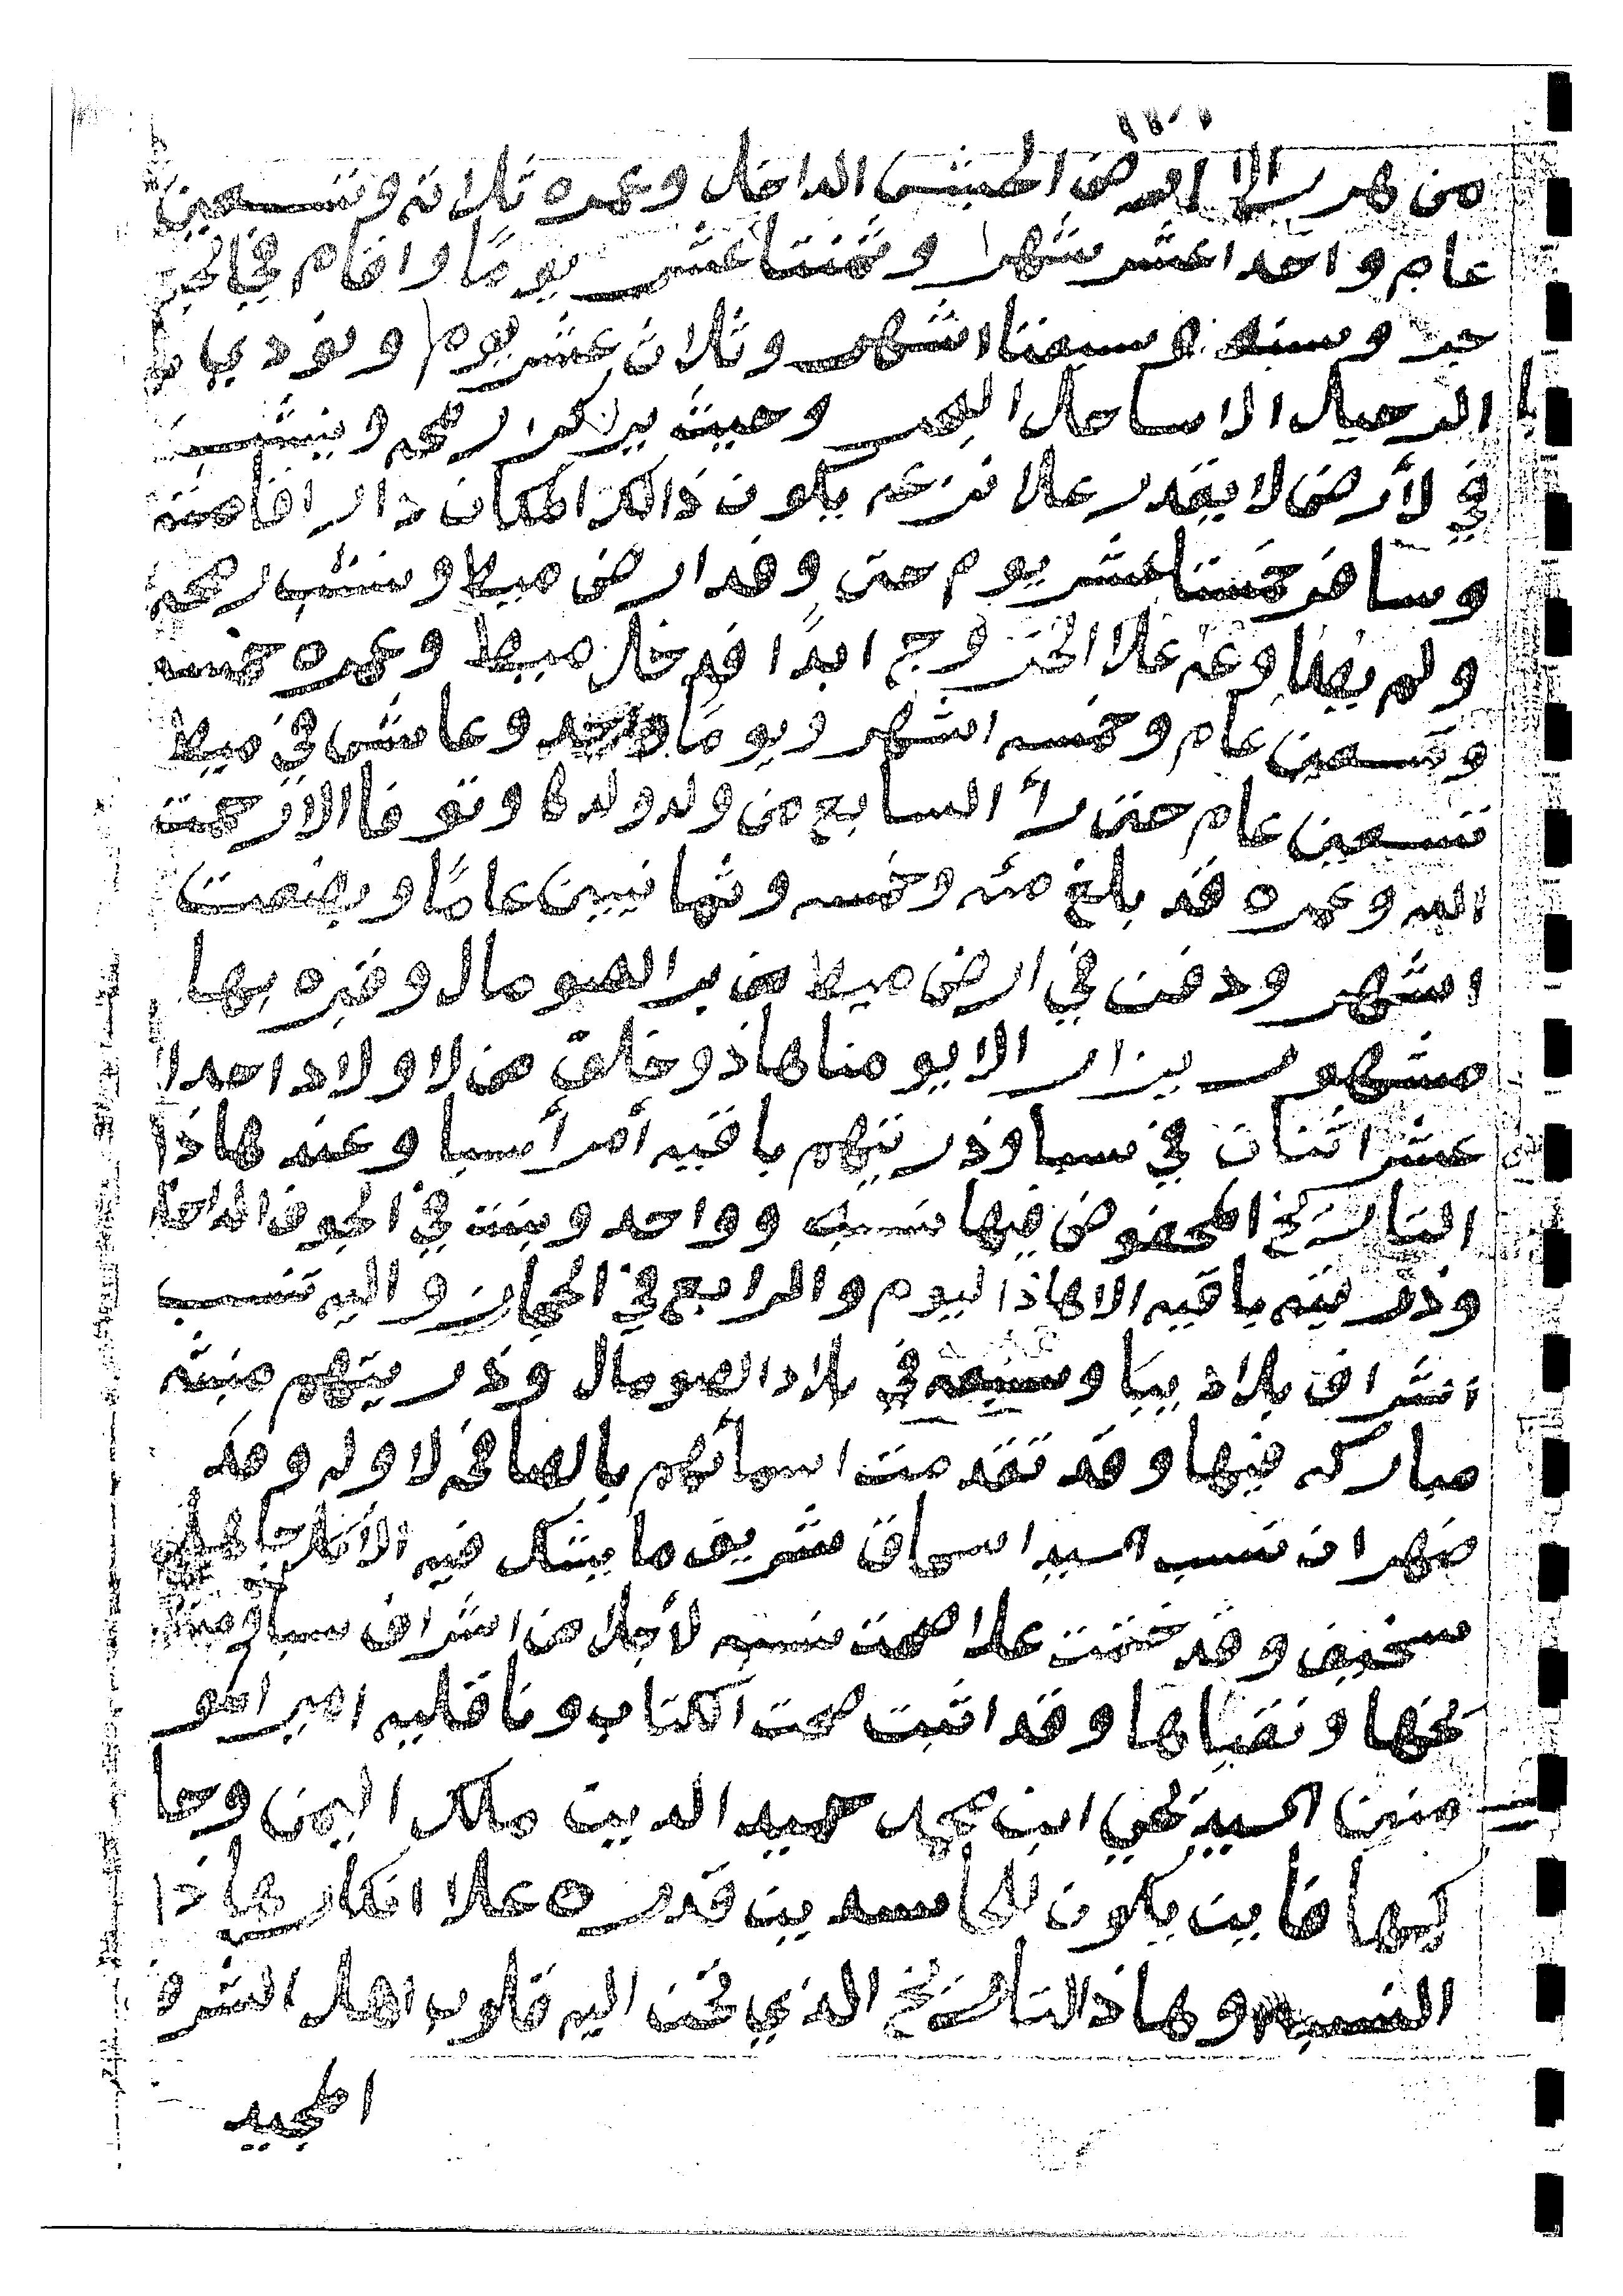 من هرر الا ارض الحبش الداخل وعمره ثلاثه وتسعين
عام واحدا عشر شهرا وثمنتا عشر يومًا واقام في الجز
حيد وسنه وسبعتا اشهر وثلاث عشر يوم ونودي با
با الرحيل الا ساحل البحر وحيث يركز ارمحه وينشب
في لأرض لا يقدر علا نزعه يكون ذالك المكان دار اقامته
وسافر خمستا عشر يوم حتى وفد ارض ميط ونشب رمحه
ولم يطاوعه علا الخروج ابدًا فدخل ميط وعمره خمسه
وتسعين عام وخمسه اشهر ويومًا واحد وعاش في ميط
تسعين عام حتى رأ السابع من ولد ولدها وتوفا الا رحمت
الله وعمره قد بلغ مئه وخمسه وثمانيين عامًا وبضعت
اشهر ودفن في ارض ميط من بر الصومال وقبره بها
مشهور يزار الا يومنا هاذ وخلق من لاولاد احدا
عشر اثنان في سبا وذريتهم باقيه أمرأ سبا وعند هاذا
التاريخ المحفوض فيها نسبه وواحد وبنت في الجوف الداخل
وذريته باقيه الا هاذا ليوم والرابع في الجهان واليه تنسب
اشراف بلاد بيبا وسبعه في بلاد الصومال وذريتهم منبثه
مباركه فيها وقد تقدمت اسمائهم بالصافحه لاوله وقد
ضهر ان نسب السيد اسحاق شريف ما يشك فيه الا كل جاهل
سخيف وقد ختمت علا صحت نسبه لأجلا من اشراف سبا ومشا
يخها ونقباها وقد اثبت صحت الكتاب وناقليه امير المو
منين السيد يحي ابن محمد حميد الدين ملك اليمن وحا
كمها فاين يكون للحاسدين قدره علا انكار هاذا
النسب وهاذ التاريخ الذي تحن اليه قلوب اهل الشرف
المجيد